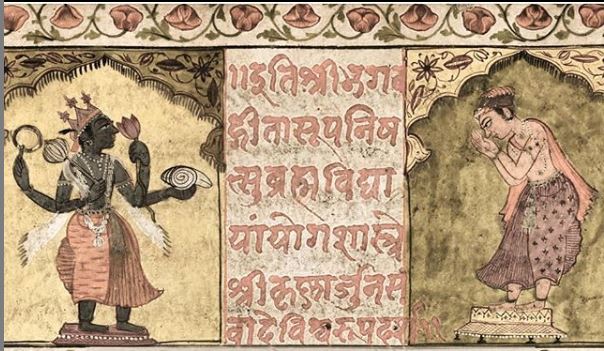 ॥इतिश्रीभगव
द्गीतासूपनिष
त्सुब्रह्मविद्या
यांयोगशास्त्रे
श्रीकृष्णार्जुनसं
वादेविश्वरूपदर्शन